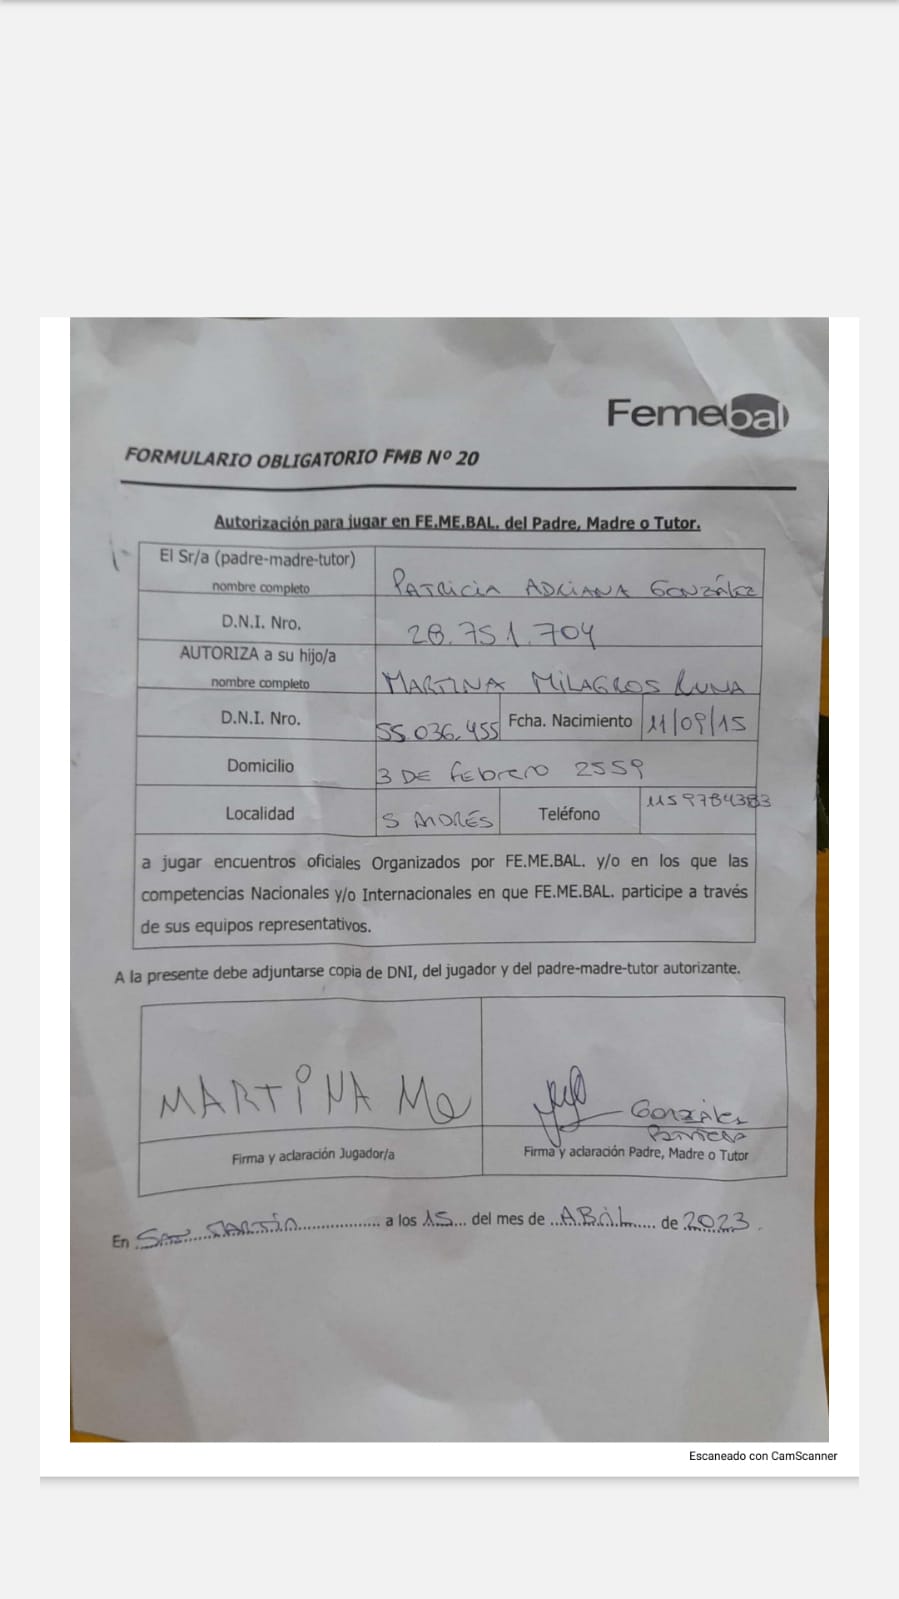 Femebal
FORMULARIO OBLIGATORIO FMB Nº 20
Autorización para jugar en FE.ME.BAL. del Padre, Madre o Tutor.
El Sr/a (padre-madre-tutor)
nombre completo
PATRICIA ADRIANA GONZÁLEZ
D.N.I. Nro.
28.751.704
AUTORIZA a su hijo/a
nombre completo
MARTINA MILAGROS LUNA
D.N.I. Nro.
55.036.455
Fcha. Nacimiento
11/09/15
Domicilio
3 DE Febrero 2559
Localidad
S ANDRÉS
Teléfono
1159784383
a jugar encuentros oficiales Organizados por FE.ME.BAL. y/o en los que las
competencias Nacionales y/o Internacionales en que FE.ME.BAL. participe a través
de sus equipos representativos.
A la presente debe adjuntarse copia de DNI, del jugador y del padre-madre-tutor autorizante.
MARTINA
González
Patricia
Firma y aclaración Jugador/a
Firma y aclaración Padre, Madre o Tutor
En San Martín a los 15 del mes de ABRIL de 2023.
Escaneado con CamScanner